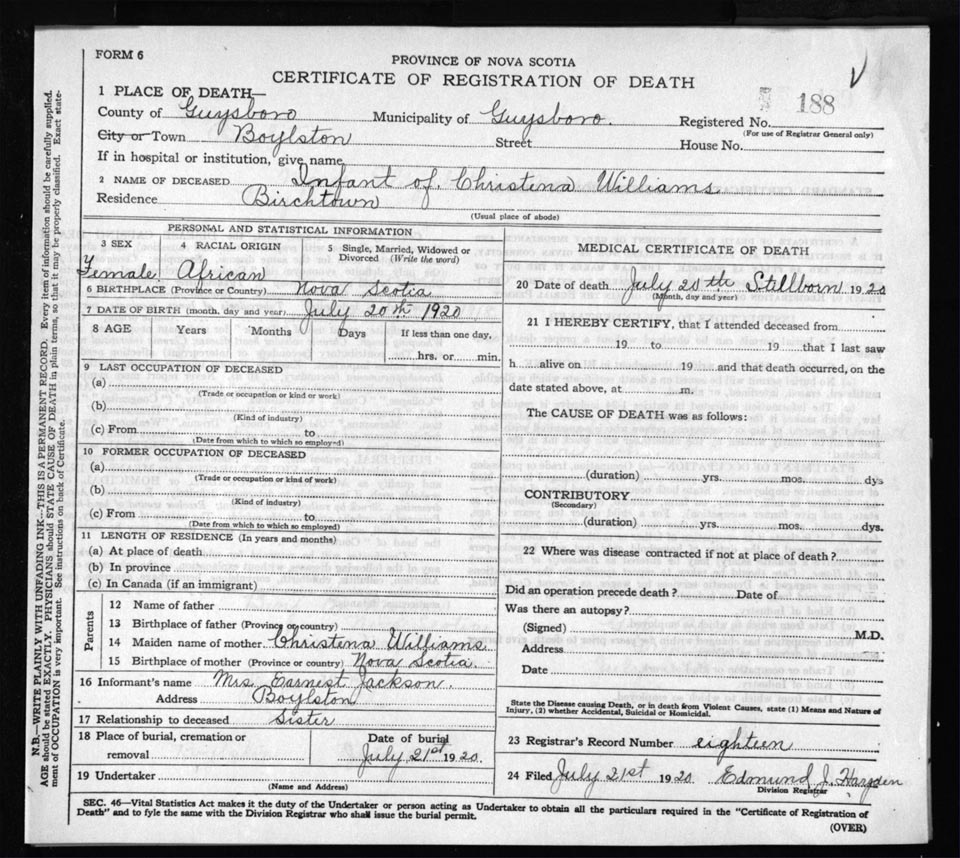 FORM 6
PROVINCE OF NOVA SCOTIA
CERTIFICATE OF REGISTRATION OF DEATH
1 PLACE OF DEATH—
County of Guysboro Municipality of Guysboro. Registered No. 188
(For use of Registrar General only)
City or Town Boylston Street House No.
If in hospital or institution, give name
2 NAME OF DECEASED Infant of Christena Williams
Residence Birchtown
(Usual place of abode)
PERSONAL AND STATISTICAL INFORMATION
3 SEX 4 RACIAL ORIGIN 5 Single, Married, Widowed or Divorced (Write the word)
Female African
6 BIRTHPLACE (Province or Country) Nova Scotia
7 DATE OF BIRTH (month, day and year) July 20th 1920
8 AGE Years Months Days If less than one day,
hrs. or min.
9 LAST OCCUPATION OF DECEASED
(a)
(Trade or occupation or kind or work)
(b)
(Kind of industry)
(c) From to
(Date from which to which so employed)
10 FORMER OCCUPATION OF DECEASED
(a)
(Trade or occupation or kind of work)
(b)
(Kind of industry)
(c) From to
(Date from which to which so employed)
11 LENGTH OF RESIDENCE (In years and months)
(a) At place of death
(b) In province
(c) In Canada (if an immigrant)
Parents
12 Name of father
13 Birthplace of father (Province or country)
14 Maiden name of mother Christena Williams
15 Birthplace of mother (Province or country) Nova Scotia.
16 Informant's name Mrs Earnest Jackson.
Address Boylston
17 Relationship to deceased Sister
18 Place of burial, cremation or removal Date of burial
July 21st 1920
19 Undertaker
(Name and Address)
MEDICAL CERTIFICATE OF DEATH
20 Date of death July 20th Stillborn 1920
(Month, day and year)
21 I HEREBY CERTIFY, that I attended deceased from
19 to 19 that I last saw
h alive on 19 and that death occurred, on the
date stated above, at m.
The CAUSE OF DEATH was as follows:
(duration) yrs. mos. dys
CONTRIBUTORY
(Secondary)
(duration) yrs. mos. dys.
22 Where was disease contracted if not at place of death?
Did an operation precede death? Date of
Was there an autopsy?
(Signed) M.D.
Address
Date
State the Disease causing Death, or in death from Violent Causes, state (1) Means and Nature of
Injury, (2) whether Accidental, Suicidal or Homicidal.
23 Registrar's Record Number eighteen
24 Filed July 21st 1920 Edmund J.
Division Registrar
SEC. 46—Vital Statistics Act makes it the duty of the Undertaker or person acting as Undertaker to obtain all the particulars required in the "Certificate of Registration of
Death" and to fyle the same with the Division Registrar who shall issue the burial permit.
(OVER)
N.B.—WRITE PLAINLY WITH UNFADING INK—THIS IS A PERMANENT RECORD. Every item of information should be carefully supplied.
AGE should be stated EXACTLY. PHYSICIANS should STATE CAUSE OF DEATH in plain terms, so that it may be properly classified. Exact state-
ment of OCCUPATION is very important. See instructions on back of Certificate.